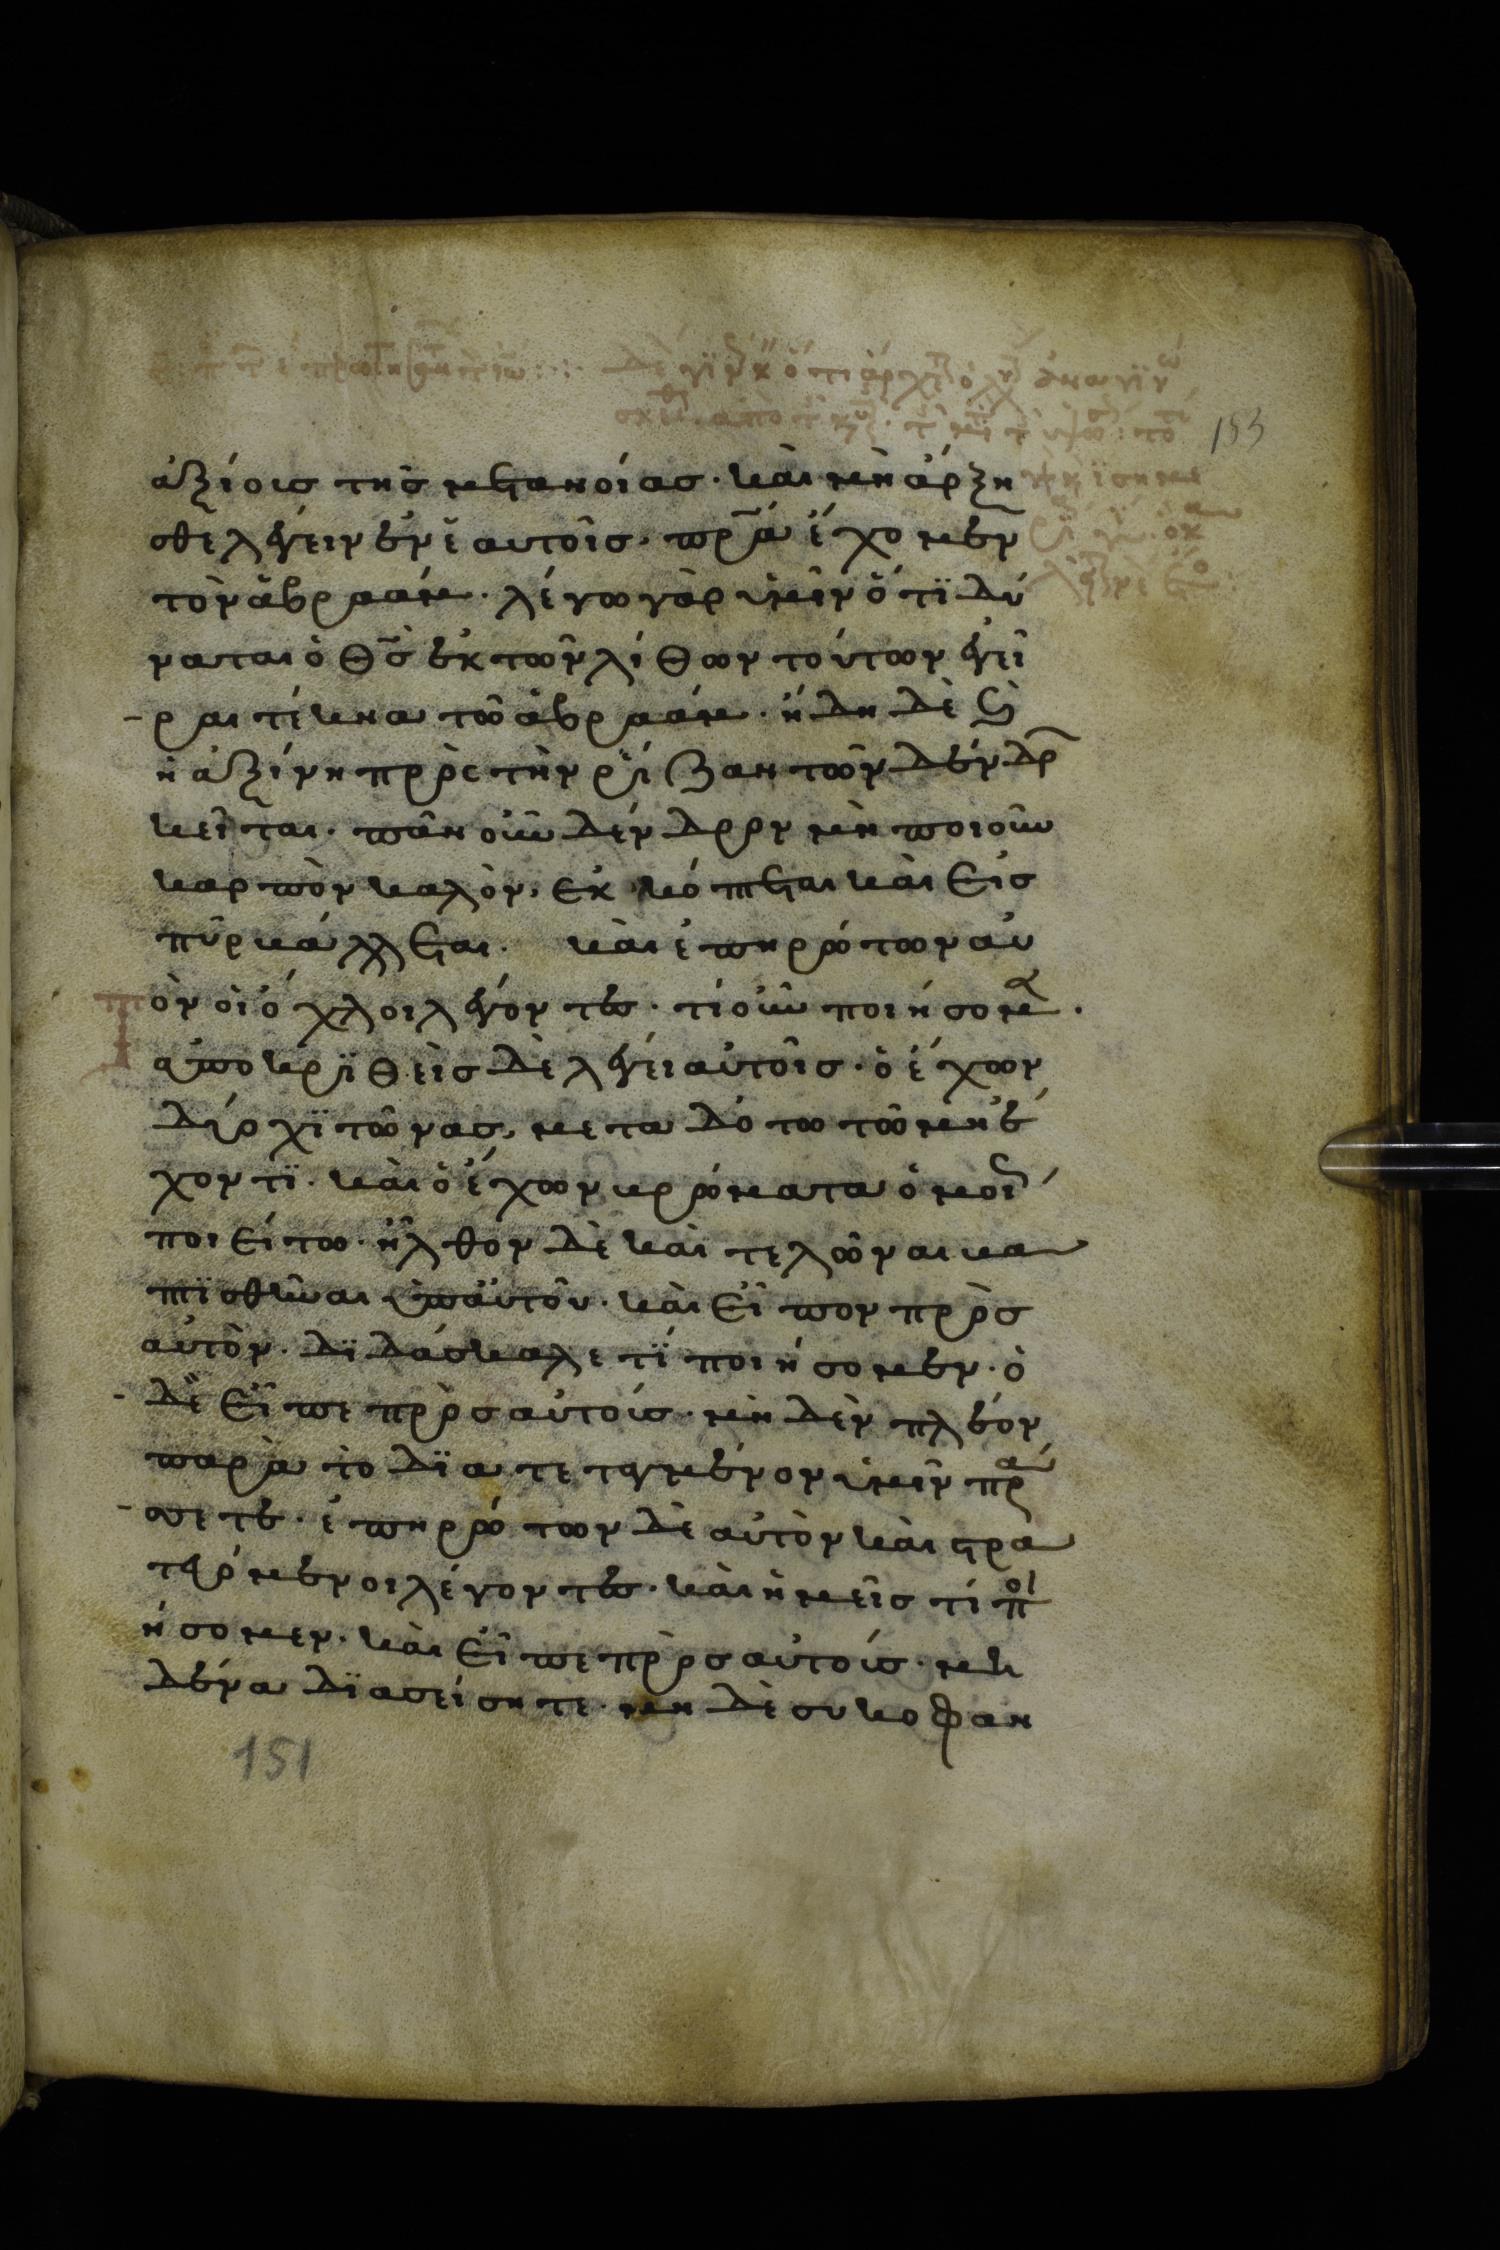 153
ἀξίοις τῆς μετανοίας· καὶ μὴ ἄρξη
σθε λέγειν ἐν ἑαυτοῖς· πρ̅α ἔχομεν
τὸν ἀβραάμ· λέγω γὰρ ὑμῖν ὅτϊ δύ
ναται ὁ θ̅ς ἐκ τῶν λίθων τούτων ἐγεῖ
ραι τέκνα τῶ ἀβραάμ· ἤδη δὲ
ἡ ἀξίνη πρὸς τὴν ῥίζαν τῶν δένδρ
κεῖται· πᾶν οὖν δένδρον μὴ ποιοῦν
καρπὸν καλὸν, ἐκκόπτεται καὶ εἰς
πῦρ βάλλεται· καὶ ἐπηρώτων αὐ
τὸν οἱ ὄχλοι λέγοντες· τί οὖν ποιήσομε·
ἀποκρϊθεὶς δὲ λέγει αὐτοῖς· ὁ ἔχων
δύο χϊτῶνας, μεταδότω τῶ μὴ ἔ
χοντϊ· καὶ ὁ ἔχων βρώματα ὁμοί
ποιείτω· ἦλθον δὲ καὶ τελῶναι βα
πτϊσθῆναι ὑπ αὐτοῦ· καὶ εἶπον πρὸς
αὐτὸν· δϊδάσκαλε τϊ ποιήσομεν· ὁ
δὲ εἶπε πρὸς αὐτούς· μηδὲν πλέον
παρὰ τὸ δϊατεταγμένον ὑμῖν πρά
σετε· ἐπηρώτων δὲ αὐτὸν καὶ στρα
τευόμενοι λέγοντες· καὶ ἡμεῖς τί ποι
ήσομεν· καὶ εἶπε πρὸς αὐτούς· μη
δένα δϊασείσητε· μηδὲ συκοφαν
151